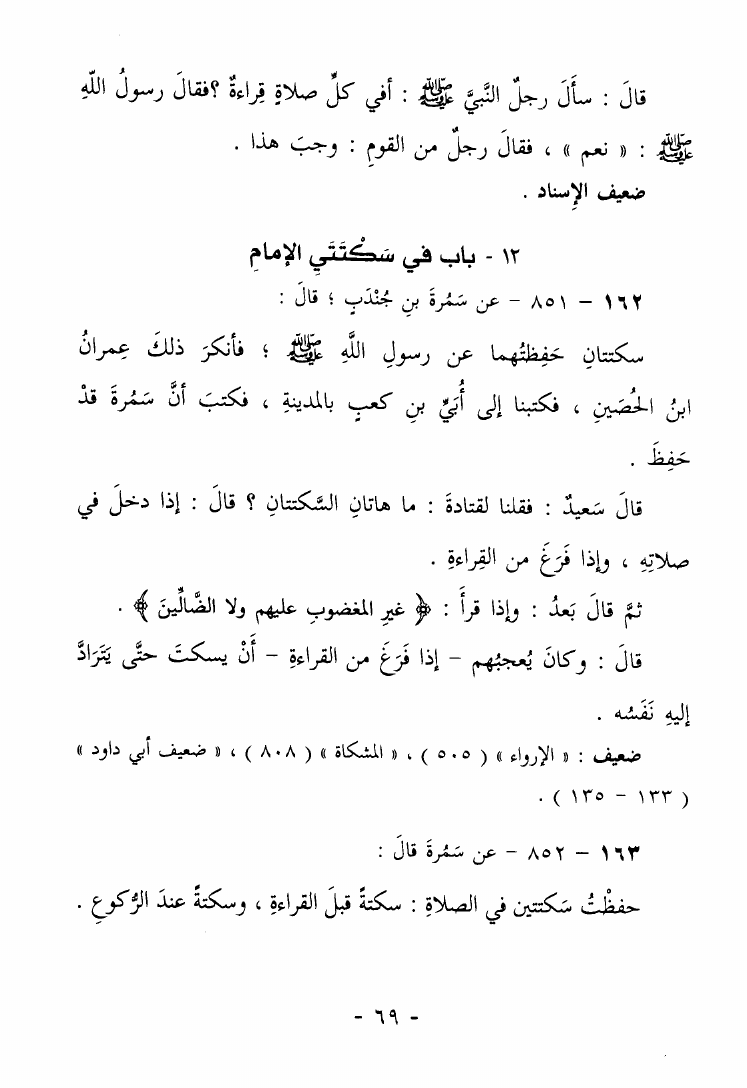 قالَ : سأَلَ رجلٌ النَّبيَّ ﷺ : أفي كلِّ صلاةٍ قِراءةٌ ؟فقالَ رسولُ اللّهِ
ﷺ : « نعم » ، فقالَ رجلٌ من القومِ : وجبَ هذا .
ضعيف الإسناد .
١٢ - باب في سَكْتَتَيِ الإمامِ
١٦٢ – ٨٥١ – عن سَمُرةَ بنِ جُنْدَبٍ ؛ قالَ :
سكتتانِ حَفِظتُهما عن رسولِ اللَّهِ ﷺ ؛ فأنكرَ ذلكَ عِمرانُ
ابنُ الحُصَينِ ، فكتبنا إلى أُبَيِّ بنِ كعبٍ بالمدينةِ ، فكتبَ أنَّ سَمُرةَ قدْ
حَفِظَ .
قالَ سَعيدٌ : فقلنا لقتادةَ : ما هاتانِ السَّكتتانِ ؟ قالَ : إذا دخلَ في
صلاتِهِ ، وإذا فَرَغَ من القِراءةِ .
ثمَّ قالَ بَعدُ : وإذا قرأَ : ﴿ غيرِ المغضوبِ عليهم ولا الضَّالِّينَ ﴾ .
قالَ : وكانَ يُعجبُهم – إذا فَرَغَ من القراءةِ – أَنْ يسكتَ حتَّى يَتَرَادَّ
إليهِ نَفَسُه .
ضعيف : « الإرواء » ( ٥٠٥ ) ، « المشكاة » ( ٨٠٨ ) ، « ضعيف أبي داود »
( ١٣٣ – ١٣٥ ) .
١٦٣ – ٨٥٢ – عن سَمُرةَ قالَ :
حفظْتُ سَكتتين في الصلاةِ : سكتةً قبلَ القراءةِ ، وسكتةً عندَ الرُّكوعِ .
- ٦٩ -